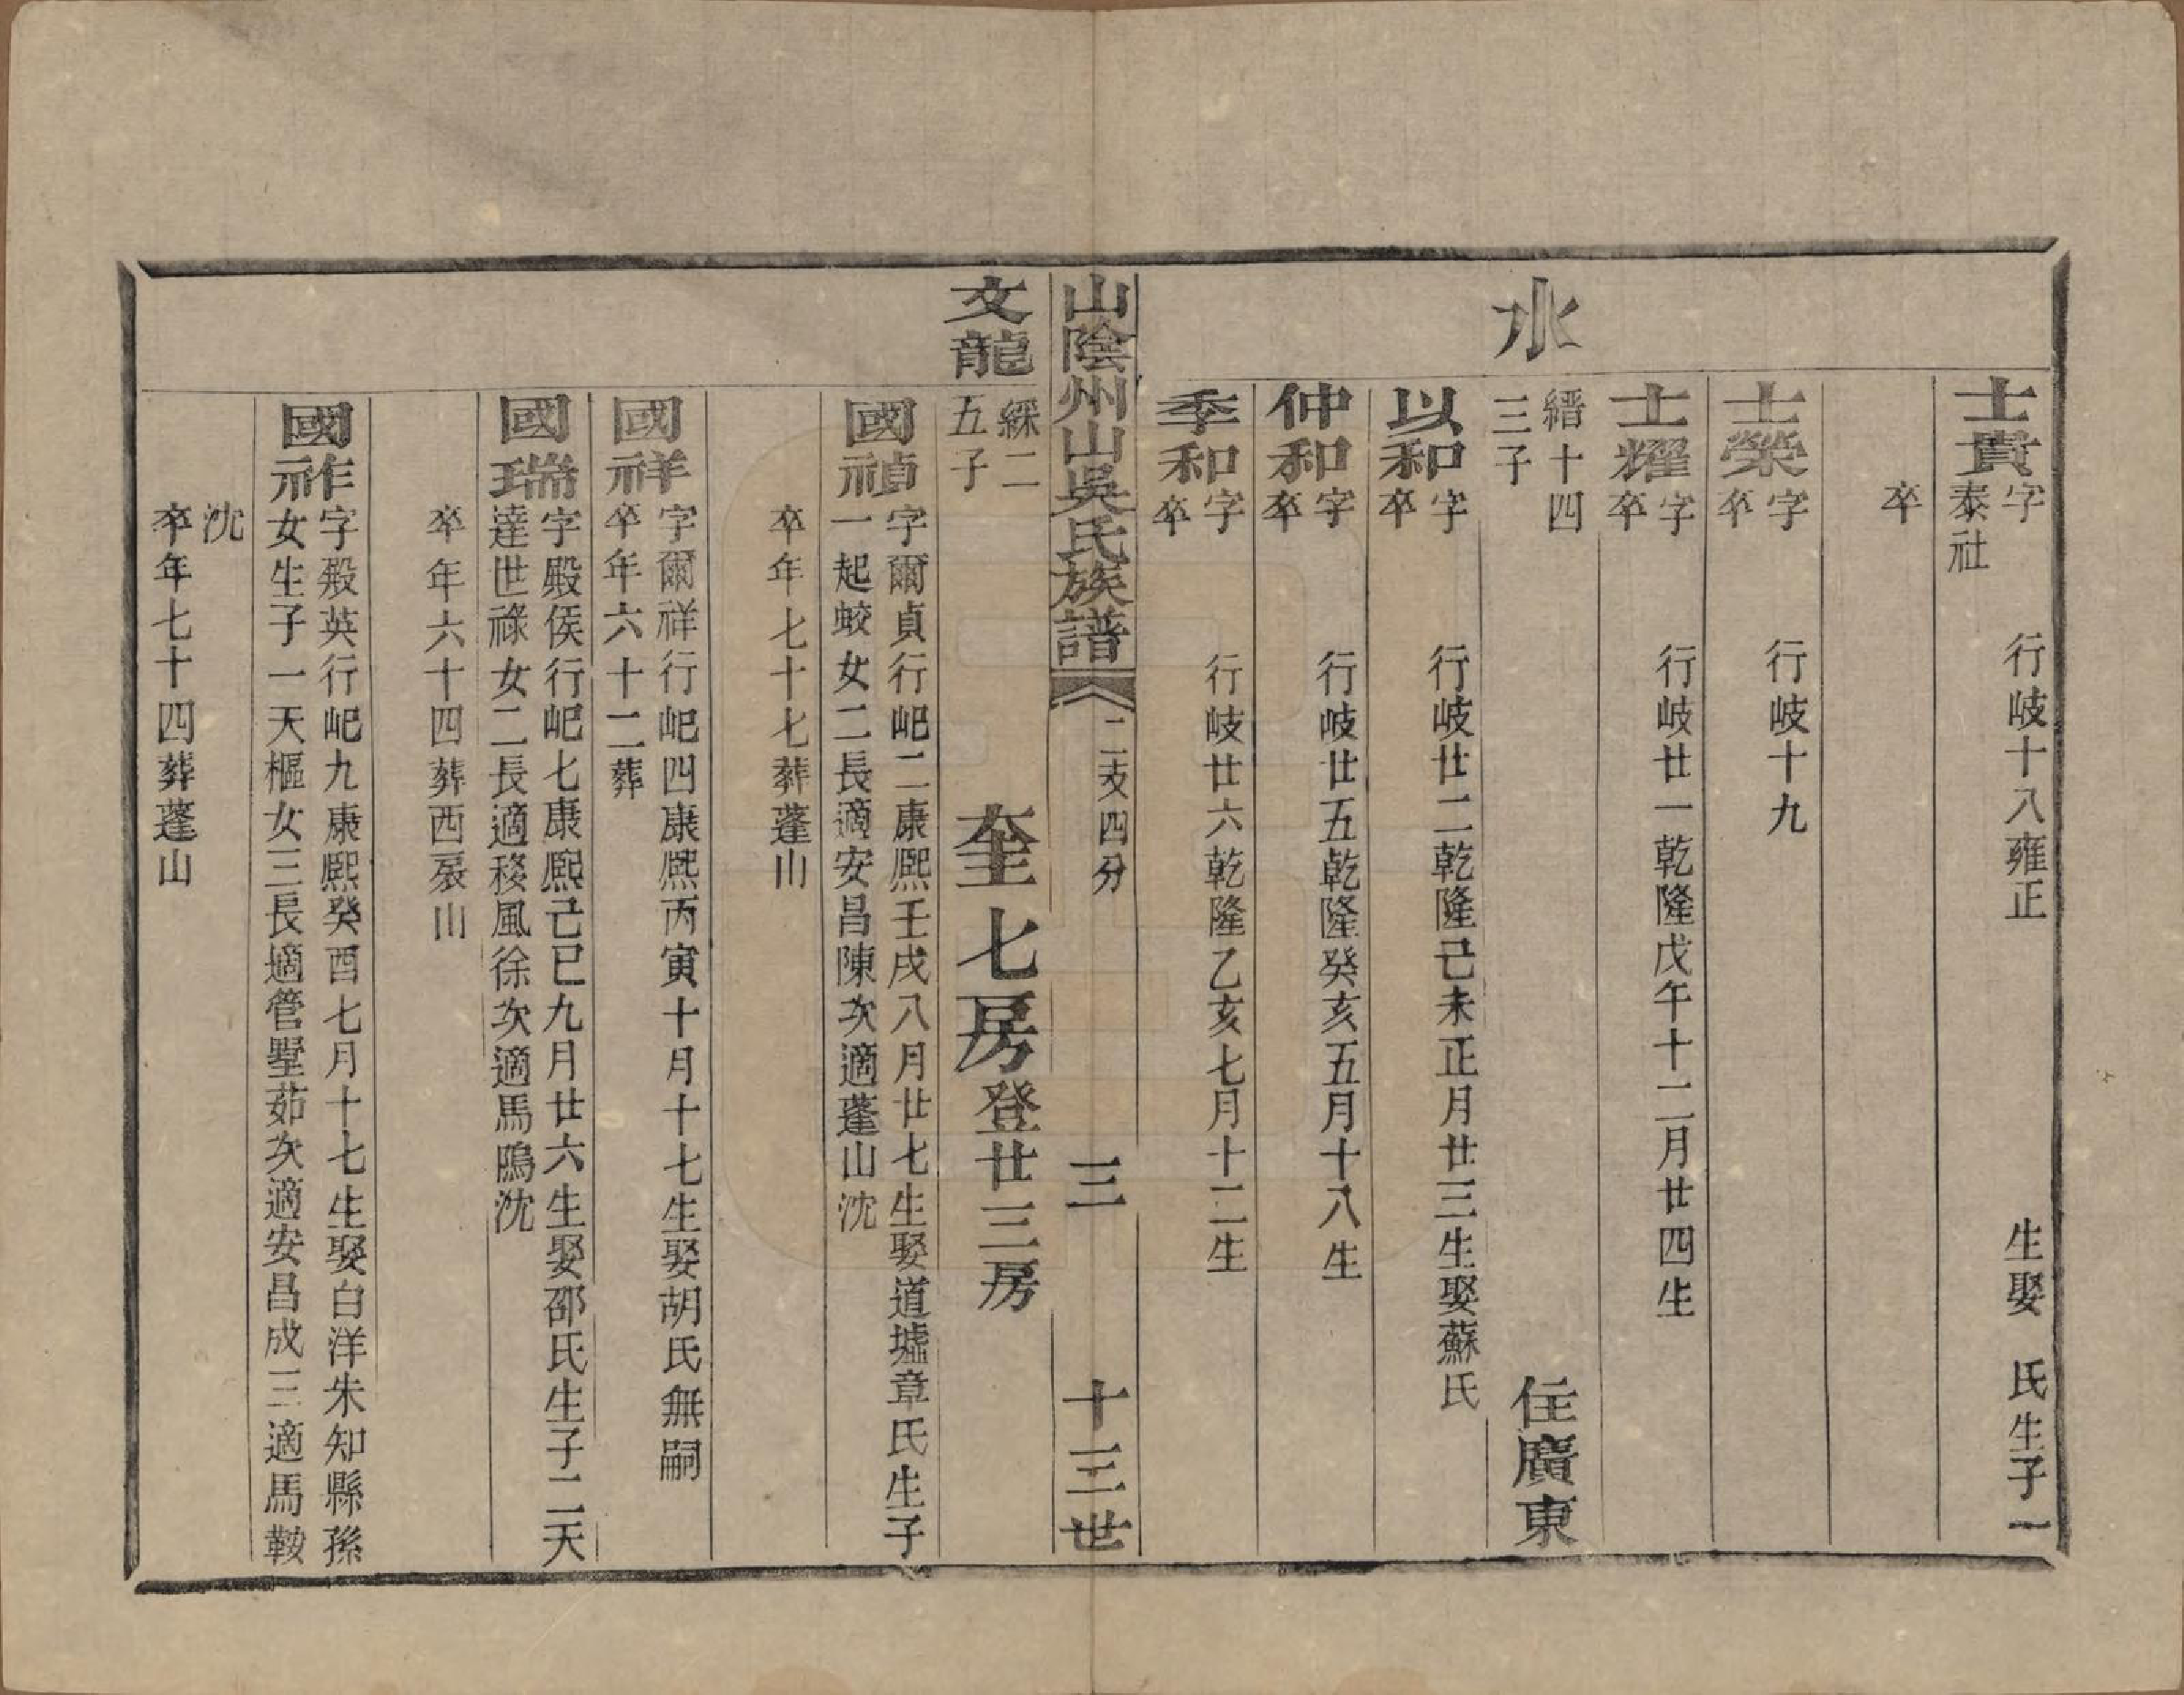 士貴字　行岐十八雍正　生娶　氏生子一
泰社
卒
士榮字　行岐十九
卒
士耀字　行岐廿一乾隆戊午十二月廿四生
卒
水　縉十四　住廣東
三子
以和字　行岐廿二乾隆己未正月廿三生娶蘇氏
卒
仲和字　行岐廿五乾隆癸亥五月十八生
卒
季和字　行岐廿六乾隆乙亥七月十二生
卒
山陰州山吳氏族譜　二支四分　三　十三世
文龍　綵二　奎七房登廿三房
五子
國禎字爾貞行屺二康熙壬戌八月廿七生娶道墟章氏生子
一起蛟女二長適安昌陳次適蓬山沈
卒年七十七葬蓬山
國祥字爾祥行屺四康熙丙寅十月十七生娶胡氏無嗣
卒年六十二葬
國瑞字殿侯行屺七康熙己巳九月廿六生娶邵氏生子二天
達世祿女二長適移風徐次適馬隝沈
卒年六十四葬西扆山
國祚字殿英行屺九康熙癸酉七月十七生娶白洋朱知縣孫
女生子一天樞女三長適管墅茹次適安昌成三適馬鞍
沈
卒年七十四葬蓬山